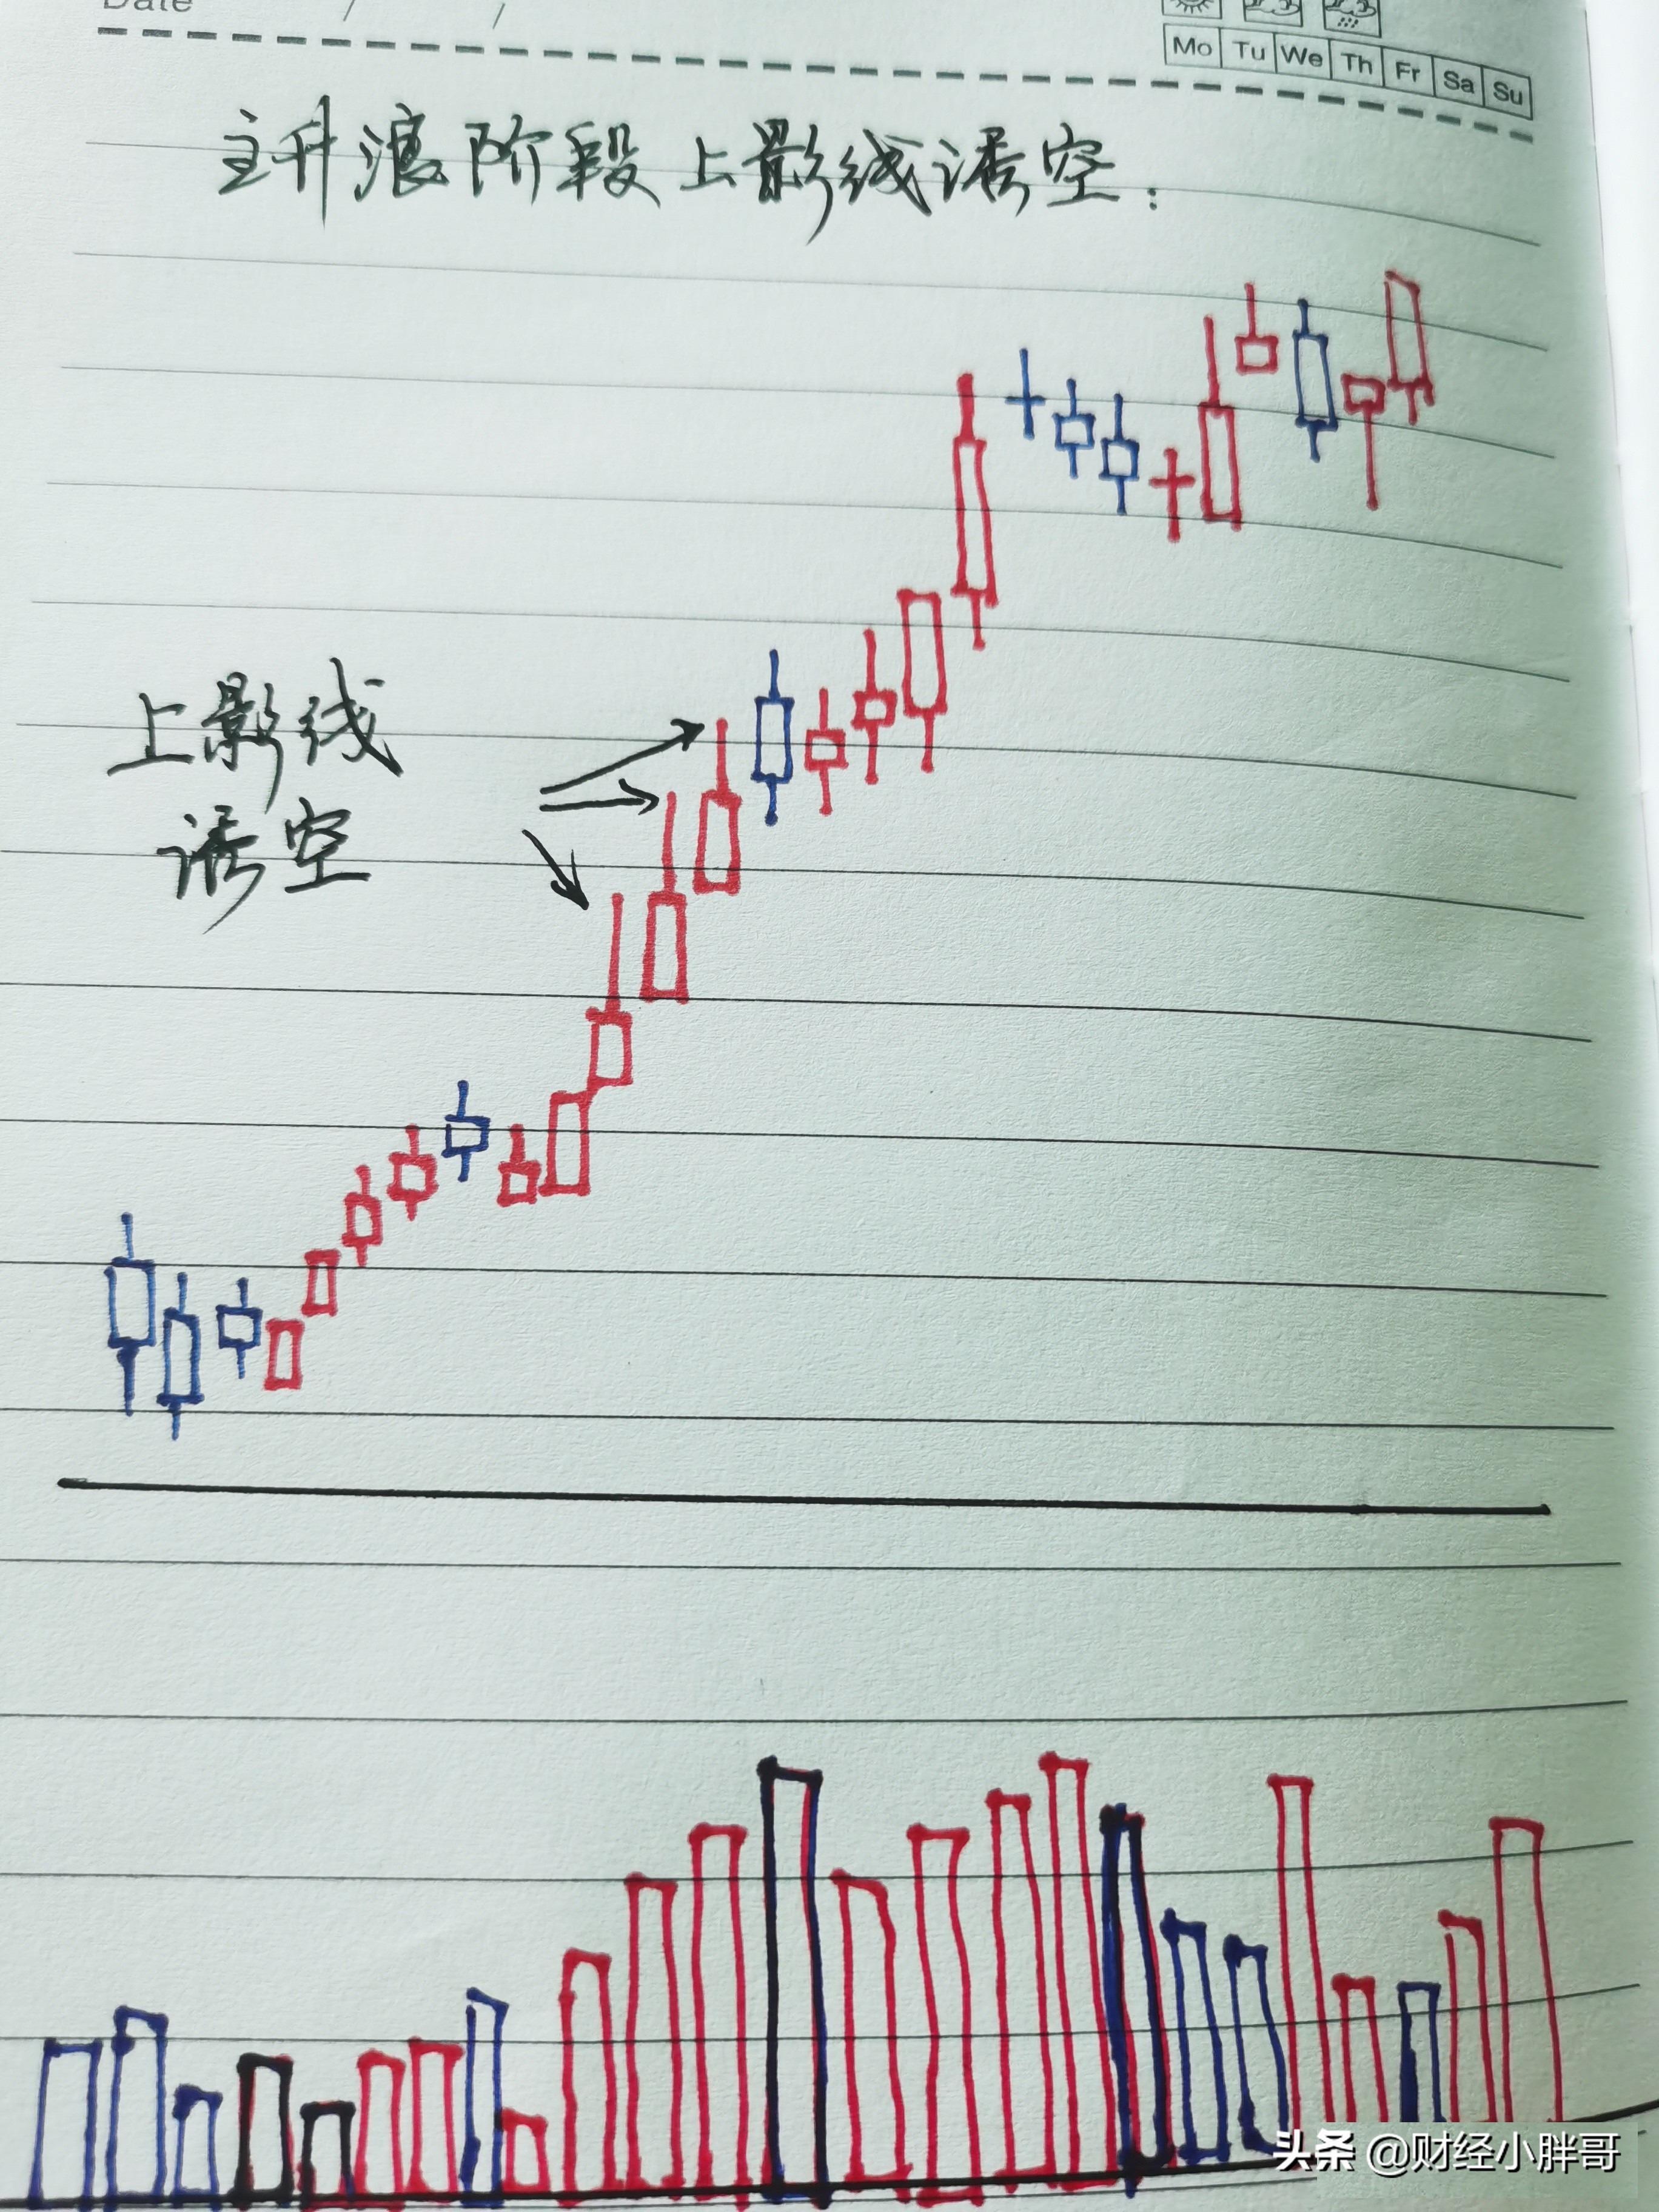 Date / /
Mo Tu We Th Fr Sa Su
主升浪阶段上影线诱空:
上影线
诱空
头条 @财经小胖哥